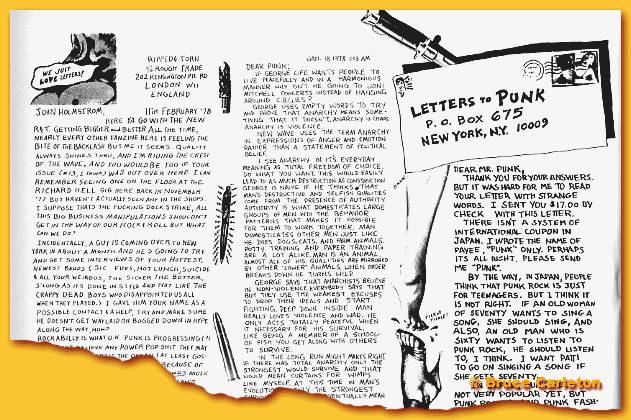 WE JUST
LOVE LETTERS!
RIPPED & TORN
℅ ROUGH TRADE
202 KENSINGTON PK RD
LONDON W11
ENGLAND
11TH FEBRUARY '78
JOHN HOLMSTROM,
HERE YA GO WITH THE NEW
R&T. GETTING BIGGER AND BETTER ALL THE TIME,
NEARLY EVERY OTHER FANZINE HERE IS FEELING THE
BITE OF THE BACKLASH BUT ME IT SEEMS. QUALITY
ALWAYS SHINES THRU, AND I'M RIDING THE CREST
OF THE WAVE, AND YOU WOULD BE TOO IF YOUR
ISSUE WAS OUT OVER HERE. I CAN
REMEMBER SEEING ONE ON THE FLOOR AT THE
RICHARD HELL GIG HERE BACK IN NOVEMBER
'77 BUT HAVEN'T ACTUALLY SEEN ANY IN THE SHOPS.
I SUPPOSE THAT'S THE FUCKING DOCK STRIKE, ALL
THIS BIG BUSINESS MANIPULATIONS SHOULDN'T
GET IN THE WAY OF OUR ROCK & ROLL BUT WHAT
CAN WE DO?
INCIDENTALLY, A GUY IS COMING OVER TO NEW
YORK IN ABOUT A MONTH AND HE'S GOING TO TRY
AND GET SOME INTERVIEWS OF YOUR HOTTEST,
NEWEST BANDS (SIC FUKS, HOT LUNCH, SUICIDE
& ALL YOUR WEIRDOS, THE SICKER THE BETTER,
S'LONG AS IT'S DONE IN STYLE AND NOT LIKE THE
CRAPPY DEAD BOYS WHO DISAPPOINTED US ALL
WHEN THEY PLAYED). I GAVE HIM YOUR NAME AS A
POSSIBLE CONTACT & HELP, TRY AND MAKE SURE
HE DOESN'T GET WAYLAID OR BOGGED DOWN IN HYPE
ALONG THE WAY, HUH?
ROCKABILLY IS WHAT U.K. PUNK IS PROGRESSING
ANY POWER POP SHIT THEY MAY
JAN. 18 1978 1:13 AM
DEAR PUNK:
IF GEORGE LIFE WANTS PEOPLE TO
LIVE PEACEFULLY AND IN A HARMONIOUS
MANNER WHY ISN'T HE GOING TO JONI
MITCHELL CONCERTS INSTEAD OF HANGING
AROUND C.B.G.B.'S?
GEORGE USES EMPTY WORDS TO TRY
AND PROVE THAT ANARCHY MEANS SOME-
THING THAT IT DOESN'T. ANARCHY IS CHAOS
ANARCHY IS VIOLENCE.
NEW WAVE USES THE TERM ANARCHY
IN EXPRESSIONS OF ANGER AND EMOTION
RATHER THAN A STATEMENT OF POLITICAL
BELIEF.
I SEE ANARCHY IN ITS EVERYDAY
MEANING AS TOTAL FREEDOM OF CHOICE,
DO WHAT YOU WANT. THIS WOULD EASILY
LEAD TO AS MUCH DESTRUCTION AS CONSTRUCTION
GEORGE IS NAIVE IF HE THINKS THAT
MAN'S DESTRUCTIVE AND SELFISH QUALITIES
COME FROM THE PRESENCE OF AUTHORITY.
AUTHORITY IS WHAT DOMESTICATES LARGE
GROUPS OF MEN INTO THE BEHAVIOR
PATTERNS THAT MAKES IT POSSIBLE
FOR THEM TO WORK TOGETHER. MAN
DOMESTICATES OTHER MEN JUST LIKE
HE DOES DOGS, CATS, AND FARM ANIMALS.
POTTY TRAINING AND PAPER TRAINING
ARE A LOT ALIKE. MAN IS AN ANIMAL
ALMOST ALL OF HIS QUALITIES ARE MIRRORED
BY OTHER "LOWER" ANIMALS. WHEN ORDER
BREAKS DOWN HE TURNS WILD
GEORGE SAYS THAT ANARCHISTS BELIEVE
IN NON-VIOLENCE. EVERYBODY SAYS THAT
BUT THEY USE THE WEAKEST EXCUSES
TO DROP THEIR IDEALS AND START
FIGHTING. DEEP DOWN INSIDE MAN
REALLY LOVES VIOLENCE AND WAR. HE
ONLY ACTS TOTALLY PEACEFUL WHEN
IT NECESSARY FOR HIS SURVIVAL,
LIKE BEING A MEMBER OF A SCHOOL
OF FISH YOU GET ALONG WITH OTHERS
TO SURVIVE.
IN THE LONG RUN MIGHT MAKES RIGHT
IF THERE WAS TOTAL ANARCHY ONLY THE
STRONGEST WOULD SURVIVE AND THAT
WOULD MEAN CURTAINS FOR WIMPS
LIKE MYSELF. AT THIS TIME IN MAN'S
LETTERS TO PUNK
P.O. BOX 675
NEW YORK, N.Y. 10009
DEAR MR. PUNK,
THANK YOU FOR YOUR ANSWERS.
BUT IT WAS HARD FOR ME TO READ
YOUR LETTER WITH STRANGE
WORDS. I SENT YOU $17.00 BY
CHECK WITH THIS LETTER.
THERE ISN'T A SYSTEM OF
INTERNATIONAL COUPON IN
JAPAN. I WROTE THE NAME OF
PAYEE, "PUNK" ONLY. PERHAPS
IT'S ALL RIGHT. PLEASE SEND
ME "PUNK".
BY THE WAY, IN JAPAN, PEOPLE
THINK THAT PUNK ROCK IS JUST
FOR TEENAGERS. BUT I THINK IT
IS NOT RIGHT. IF AN OLD WOMAN
OF SEVENTY WANTS TO SING A
SONG, SHE SHOULD SING, AND
ALSO, AN OLD MAN WHO IS
SIXTY WANTS TO LISTEN TO
PUNK ROCK, HE SHOULD LISTEN
TO, I THINK. I WANT PATTI
TO GO ON SINGING A SONG IF
SHE GETS SEVENTY.
NOT VERY POPULAR YET, BUT
PUNK ROCK AND PUNK FASH-
© Bruce Carleton